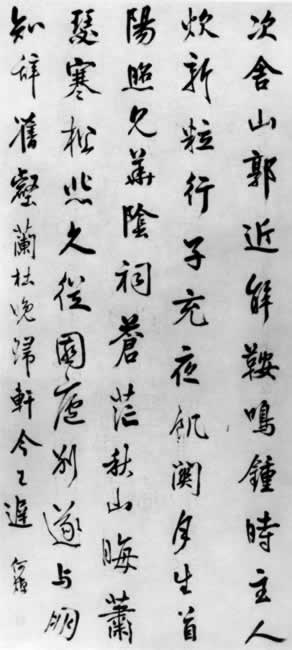 次舍山郭近解鞍鳴鐘時主人
炊新粒行子充夜飢關月生首
陽照見華陰祠蒼茫秋山晦蕭
瑟寒松悲久從園廬別遂与朋
知辭舊壑蘭杜晚歸軒今已遲 何焯